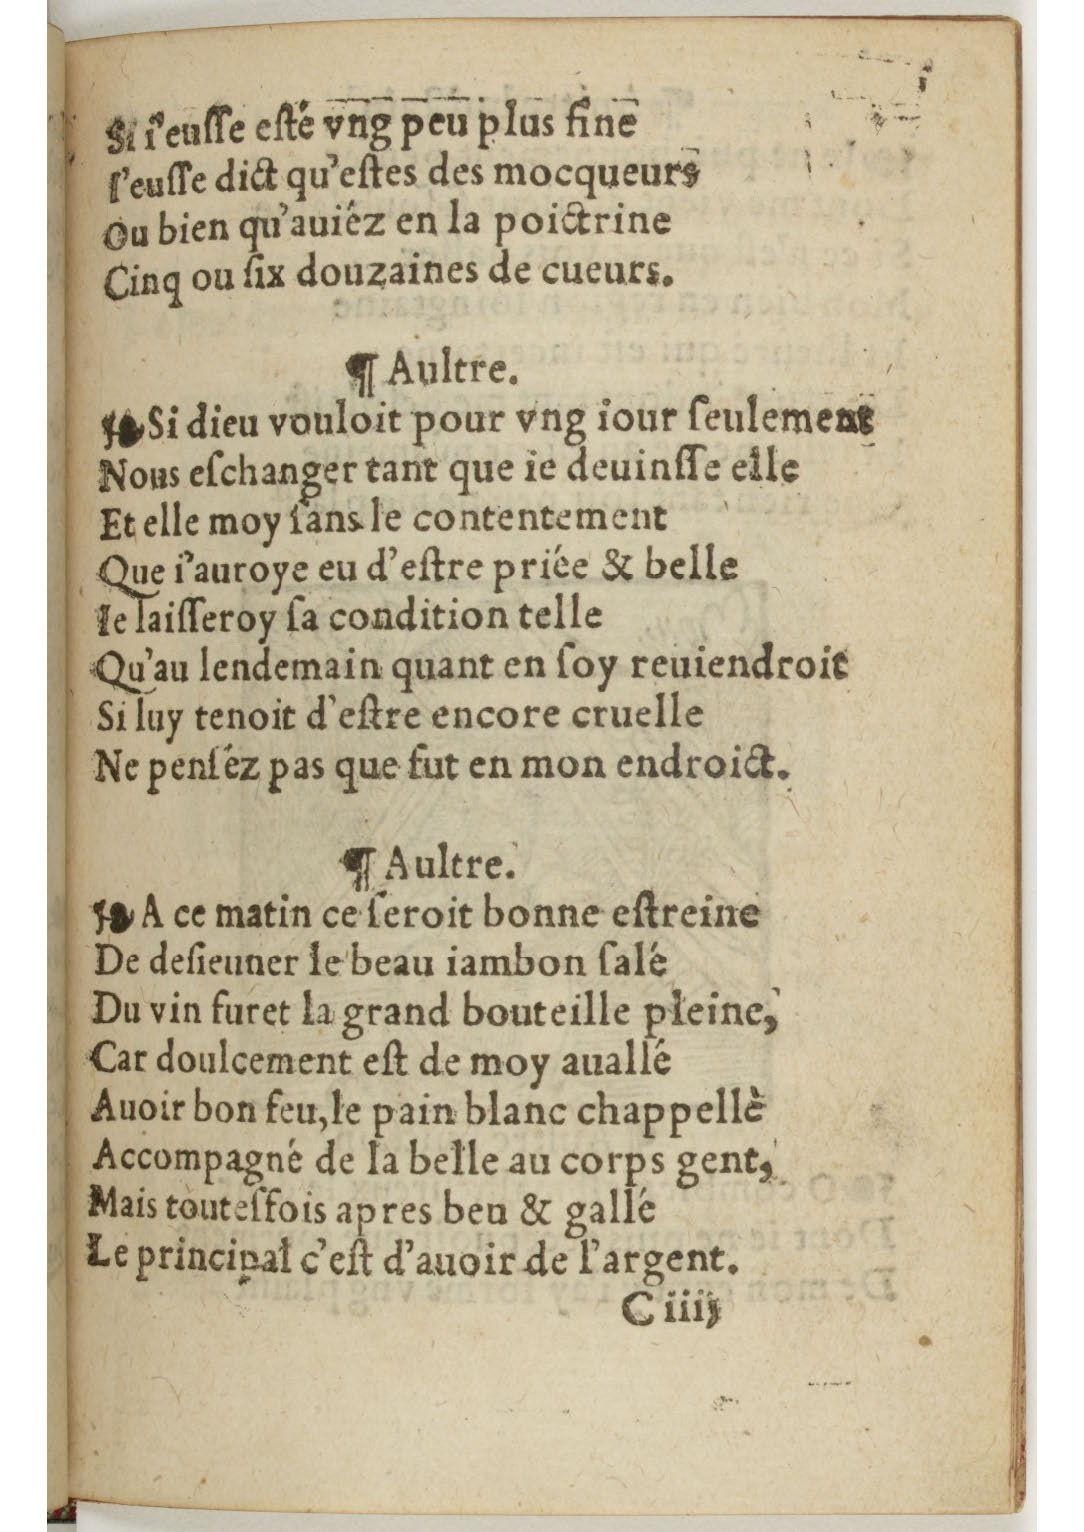 Si i'euſſe eſté vng peu plus fine
I'euſſe dict qu'eſtes des mocqueurs
Ou bien qu'auiéz en la poictrine
Cinq ou ſix douzaines de cueurs.
¶ Aultre.
❧ Si dieu vouloit pour vng iour ſeulement
Nous eſchanger tant que ie deuinſſe elle
Et elle moy ſans le contentement
Que i'auroye eu d'eſtre priée & belle
Ie laiſſeroy ſa condition telle
Qu'au lendemain quant en ſoy reuiendroit
Si luy tenoit d'eſtre encore cruelle
Ne penſéz pas que fut en mon endroict.
¶ Aultre.
❧ A ce matin ce ſeroit bonne eſtreine
De deſieuner le beau iambon ſalé
Du vin furet la grand bouteille pleine,
Car doulcement eſt de moy auallé
Auoir bon feu, le pain blanc chappellè
Accompagné de la belle au corps gent,
Mais touteſfois apres beu & gallé
Le principal c'eſt d'auoir de l'argent.
C iiij